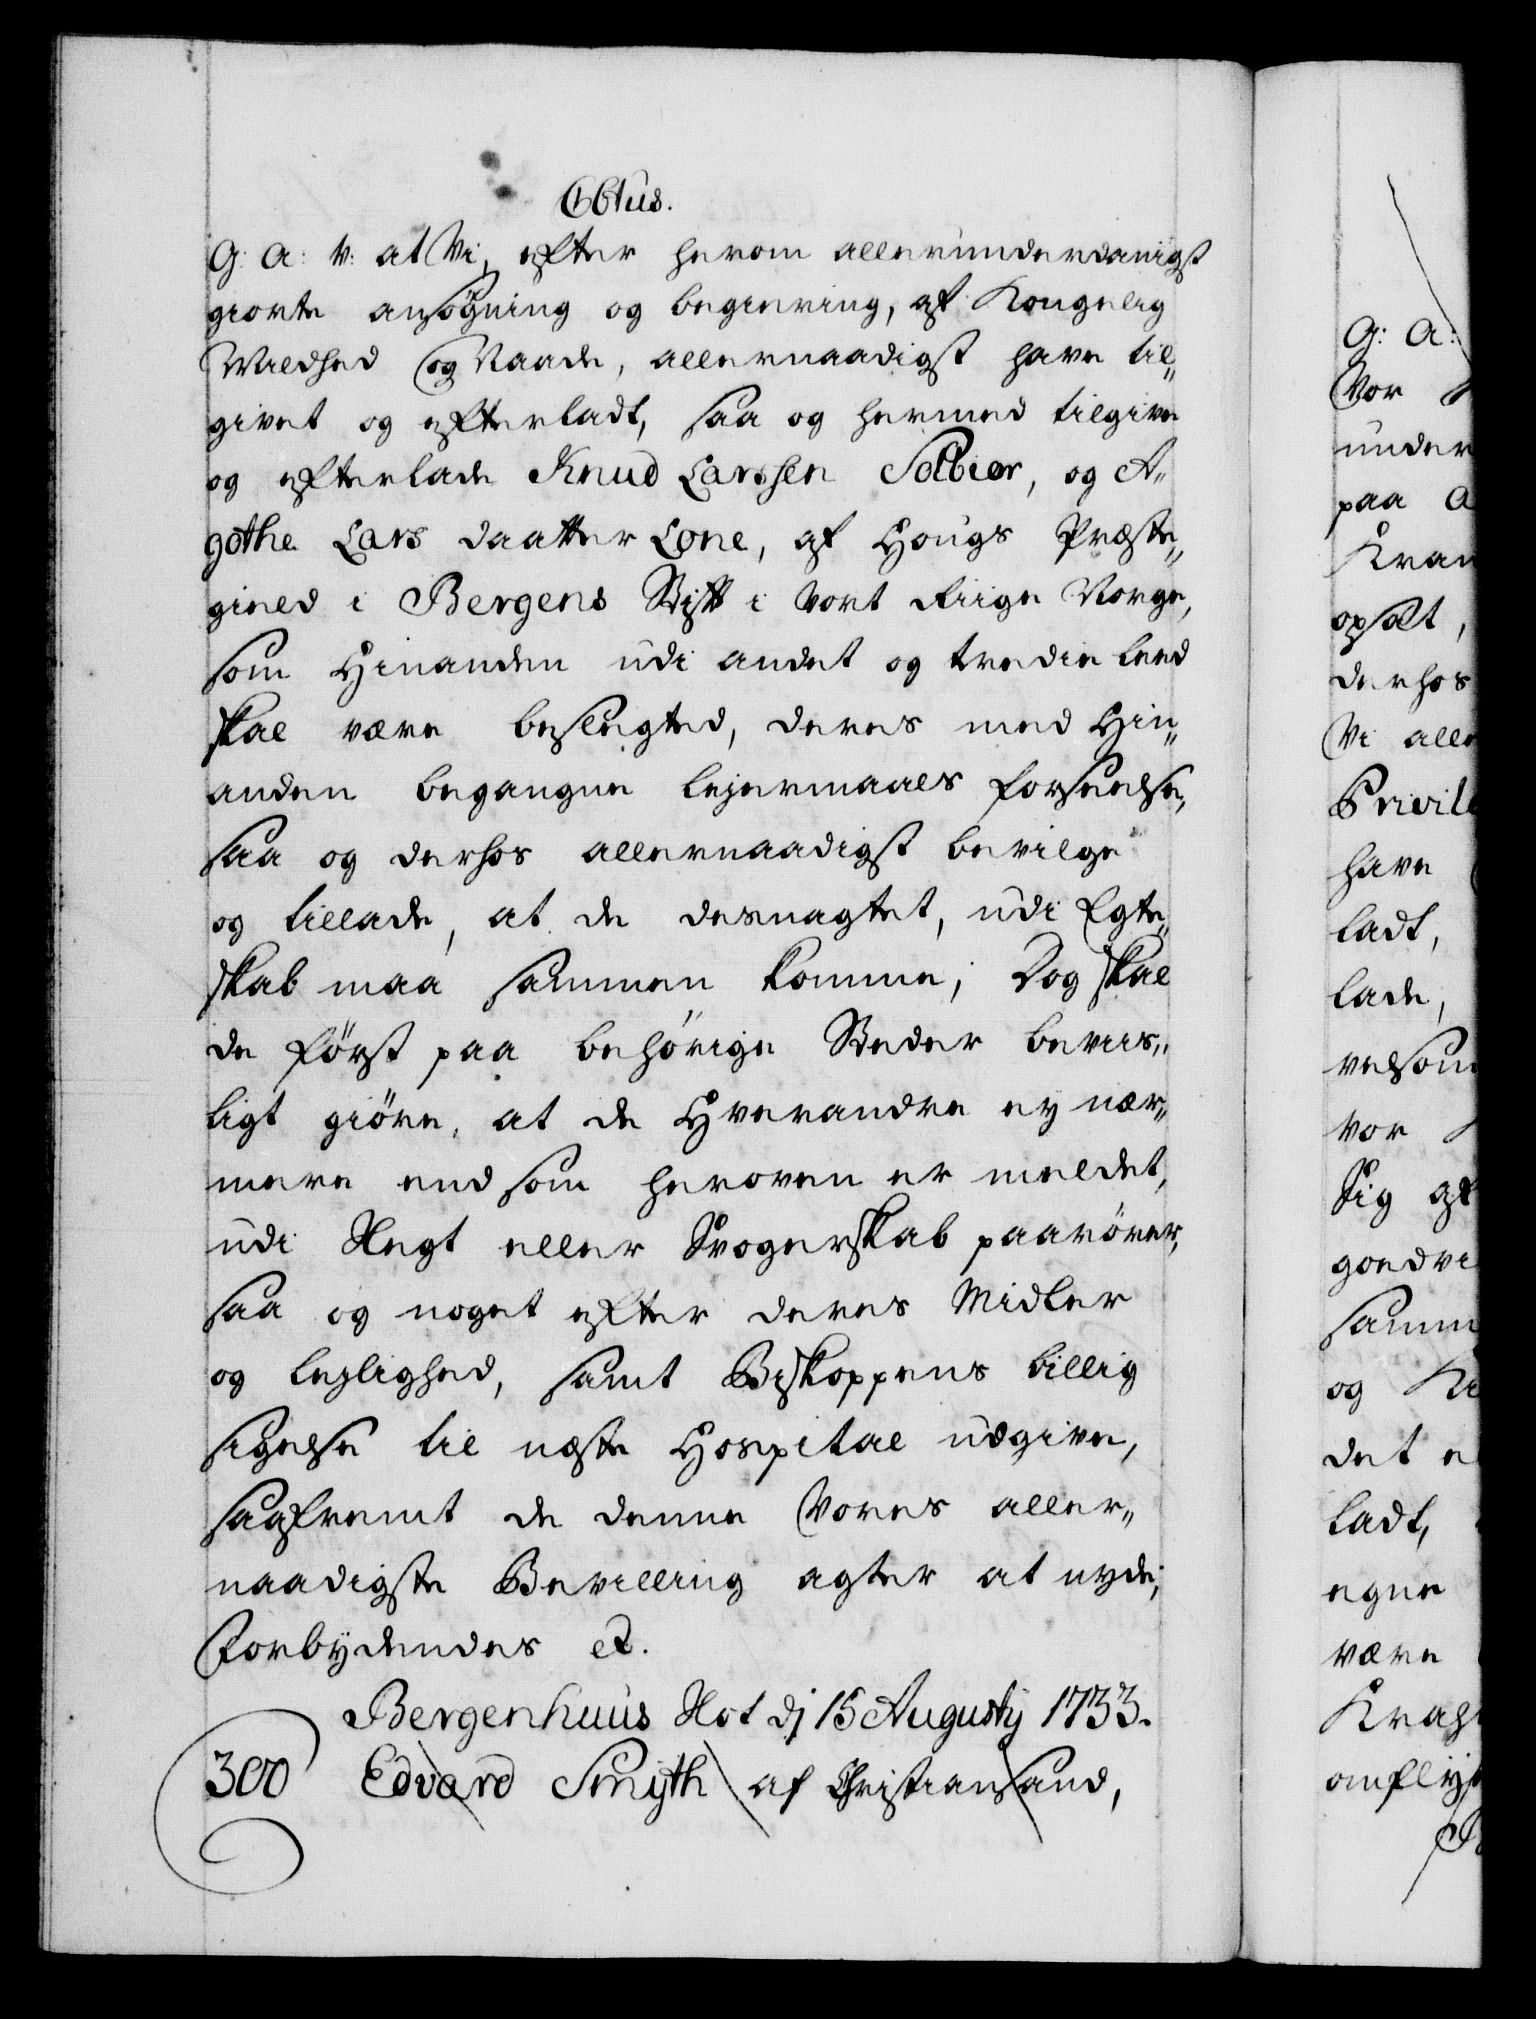 C6tus.
G: A: V: at Vi, efter herom allerunderdanigst
giorte ansøgning og begiering, af Kongelig
Mildhed og Naade, allernaadigst have til„
givet og efterladt, saa og hermed tilgive
og efterlade Knud Larssen Solbiør, og A„
gothe Lars daatter Lone, af Hougs Præste„
gield i Bergens Stift i Vort Riige Norge,
som Hinanden udi andet og tredie leed
skal være beslegted, deres med Hin„
anden begangne lejermaals forseelse,
saa og derhos allernaadigst bevilge
og tillade, at de desuagtet, udi Egte„
skab maa sammen komme; Dog skal
de først paa behørige Steder beviis„
ligt giøre, at de Hverandre ey nær„
mere end som heroven er meldet,
udi Slegt eller Svogerskab paarører,
saa og noget efter deres Midler
og lejlighed, samt Biskoppens billig
sigelse til næste Hospital udgive,
saafremt de denne Vores aller„
naadigste Bevilling agter at nyde;
Forbydendes etc.
Bergenhuus Slot dj 15 Augustij 1733.
300 Edvard Smijth af Christiansand,
G: A:
Vor
under
paa
opsat,
derhos
Vi alle
Privile
have
ladt,
lade,
velsom
vor
Sig af
goedvi
samm
og
det e
ladt,
egne
være